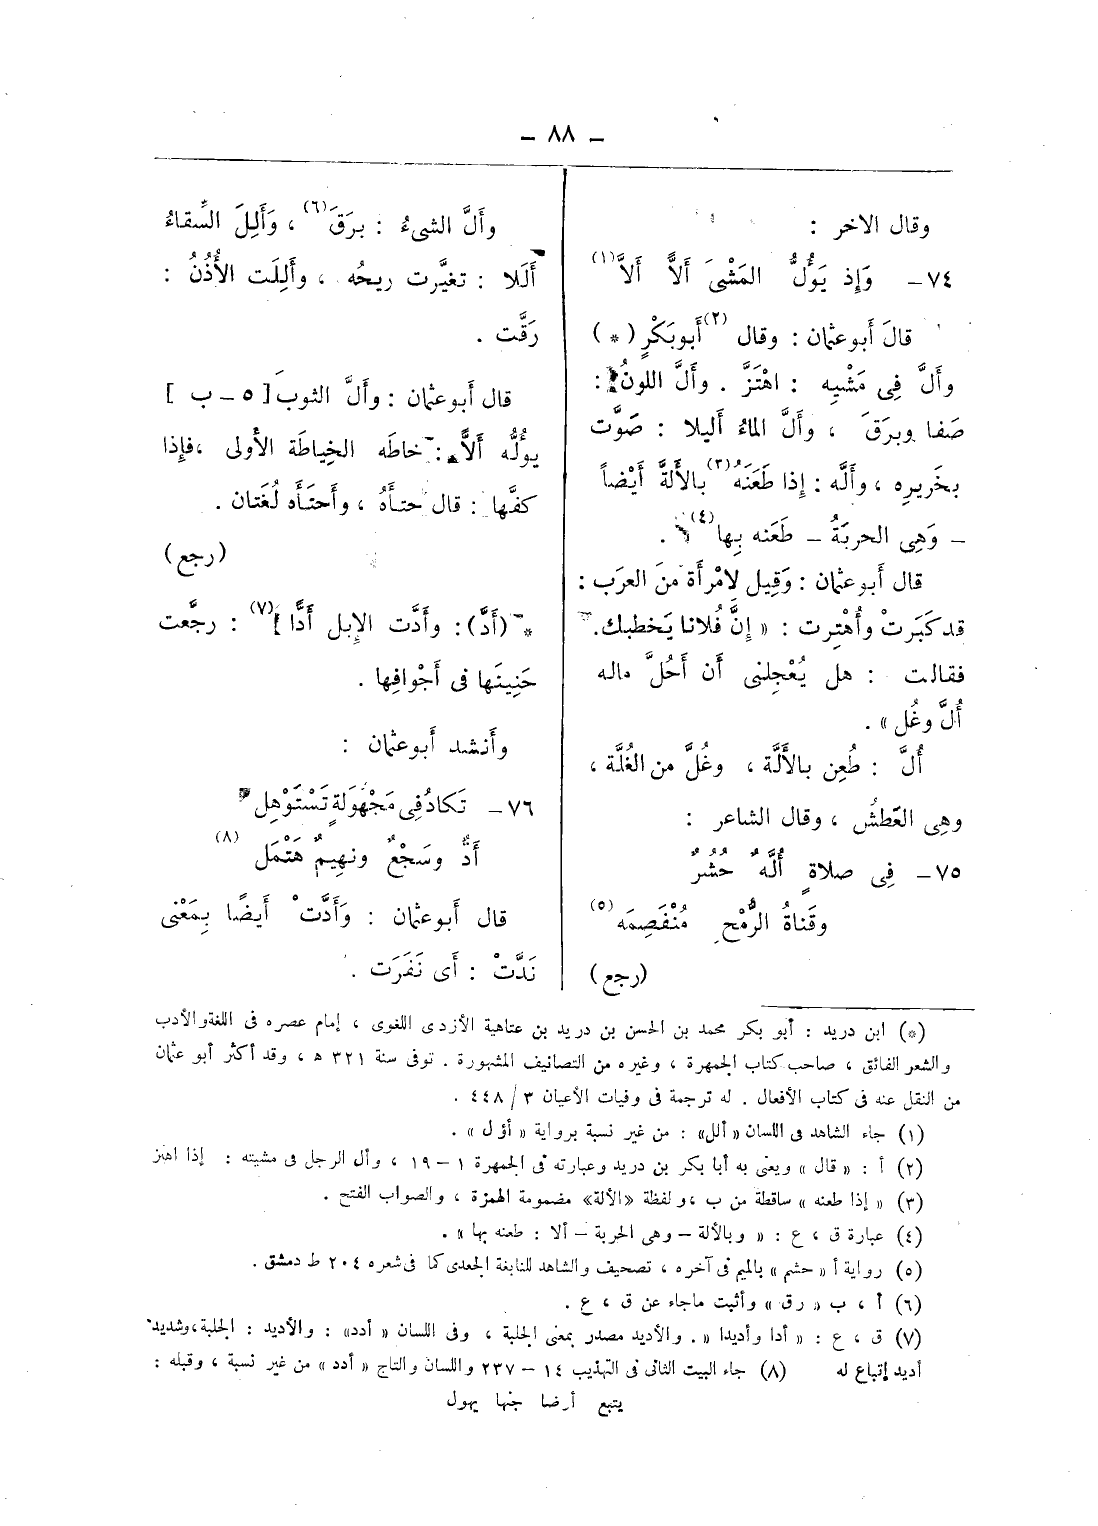 – ٨٨ –
وقال الاخر :
٧٤ – وَإِذ يَؤُلُّ المَشْىَ أَلاًّ أَلاَّ(١)
قالَ أَبوعثمان : وقال (٢)أَبوبَكْرٍ (*)
وأَلَّ فِى مَشْيِه : اهْتَزَّ . وأَلَّ اللونُ :
صَفا وبرَقَ ، وأَلَّ الماءُ أَليلا : صَوَّت
بخَريرِه ، وأَلَّه : إِذا طَعَنَهُ(٣) بالأَلةَّ أَيْضاً
– وَهِى الحربَةُ – طَعَنه بِها(٤) .
قال أَبوعثمان : وَقِيل لامْرأَة منَ العرَب :
قد كَبَرتْ وأُهْتِرت : « إِنَّ فُلانا يَخطبك .
فقالت : هل يُعْجِلنى أَن أَحُلَّ ماله
أُلَّ وغُل » .
أُلَّ : طُعِن بالأَلَّة ، وغُلَّ من الغُلَّة ،
وهِى العَطشُ ، وقال الشاعر :
٧٥ – فِى صلاةٍ أُلَّهٌ حُشُرٌ
وقَناةُ الرُّمْحِ مُنْفَصِمَه(٥)
(رجع)
وأَلَّ الشىءُ : برَقَ(٦) ، وَأَلِلَ السِّقاءُ
أَلَلا : تغيَّرت ريحُه ، وأَلِلَت الأُذُنُ :
رَقَّت .
قال أَبوعثمان : وأَلَّ الثوبَ [ ٥ – ب ]
يؤُلُّه أَلاًّ : خاطَه الخِياطَة الأُولى ، فإِذا
كفَّها : قال حتأَهُ ، وأَحتَأَه لُغَتان .
(رجع)
* (أَدَّ) : وأَدَّت الإِبل أَدًّا ](٧) : رجَّعت
حَنِينَها فى أَجْوافِها .
وأَنشد أَبوعثمان :
٧٦ – تَكادُفِى مَجْهُولَةٍ تَسْتَوْهِل
أَدٌّ وسَجْعٌ ونهِيمٌ هَتْمَل (٨)
قال أَبوعثمان : وَأَدَّتْ أَيضًا بِمَعْنى
نَدَّتْ : أَى نَفَرَت .
(*) ابن دريد : أبو بكر محمد بن الحسن بن دريد بن عتاهية الأزدى اللغوى ، إمام عصره فى اللغة والأدب
والشعر الفائق ، صاحب كتاب الجمهرة ، وغيره من التصانيف المشهورة . توفى سنة ٣٢١ هـ ، وقد أكثر أبو عثمان
من النقل عنه فى كتاب الأفعال . له ترجمة فى وفيات الأعيان ٣ / ٤٤٨ .
(١) جاء الشاهد فى اللسان « ألل» : من غير نسبة برواية « أؤل » .
(٢) أ : « قال » ويعنى به أبا بكر بن دريد وعبارته فى الجمهرة ١ – ١٩ ، وأل الرجل فى مشيته : إذا اهتز
(٣) « إذا طعنه » ساقطة من ب ، ولفظة «الألة» مضمومة الهمزة ، والصواب الفتح .
(٤) عبارة ق ، ع : « وبالألة – وهى الحربة – ألا : طعنه بها » .
(٥) رواية أ « حشم » بالميم فى آخره ، تصحيف والشاهد للنابغة الجعدى كما فى شعره ٢٠٤ ط دمشق .
(٦) أ ، ب « رق » وأثبت ماجاء عن ق ، ع .
(٧) ق ، ع : « أدا وأديدا » . والأديد مصدر بمعنى الجلبة ، وفى اللسان « أدد» : والأديد : الجلبة ، وشديد
أديد إتباع له (٨) جاء البيت الثانى فى التهذيب ١٤ – ٢٣٧ واللسان والتاج « أدد » من غير نسبة ، وقبله :
يتبع أرضا جنها يهول